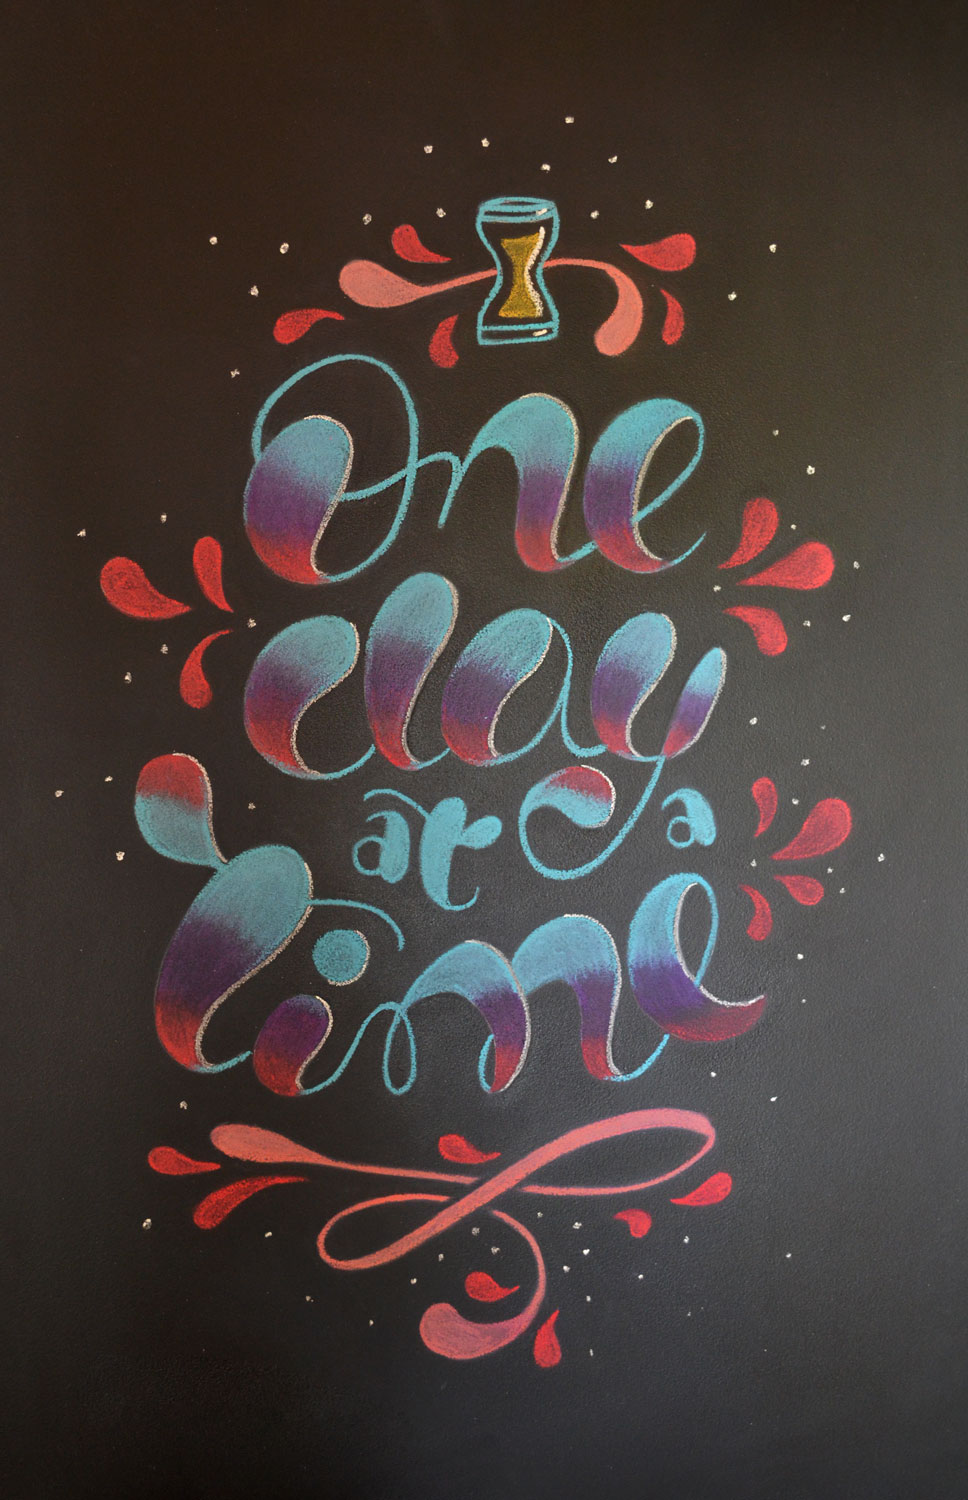 One
day
at a
time